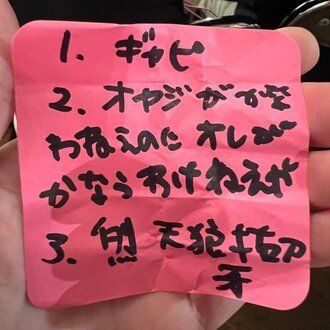 1. ギャピ
2. オヤジがかな
わねえのに オレが
かなうわけねえや
3. 天狼抜刀
牙